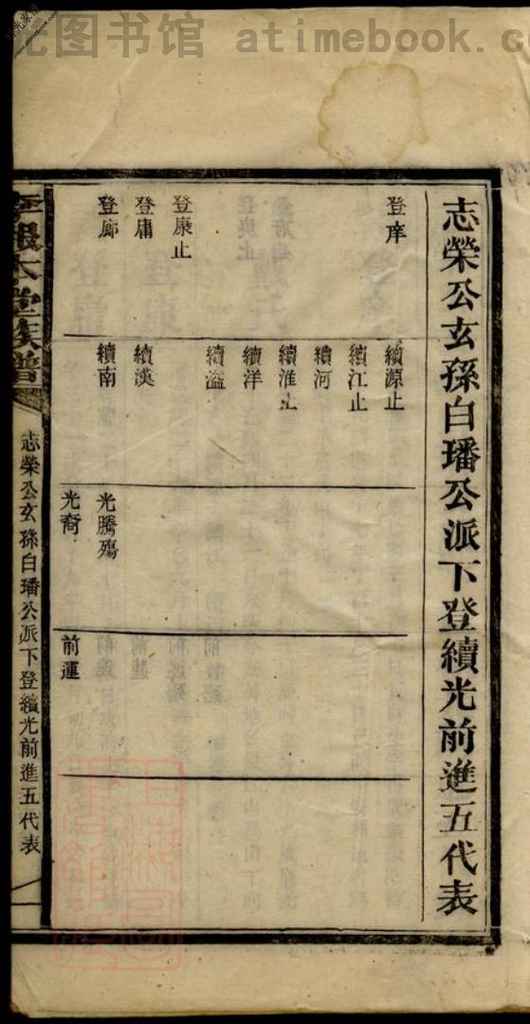 图书馆 atimebook.c
志榮公玄孫白璠公派下登續光前進五代表
登庠
登康止
登庸
登廊
續源止
續江止
續河
續淮止
續洋
續溢
續漢
續南
光騰殤
光裔
前運
族譜
志榮公玄孫白璠公派下登續光前進五代表
一